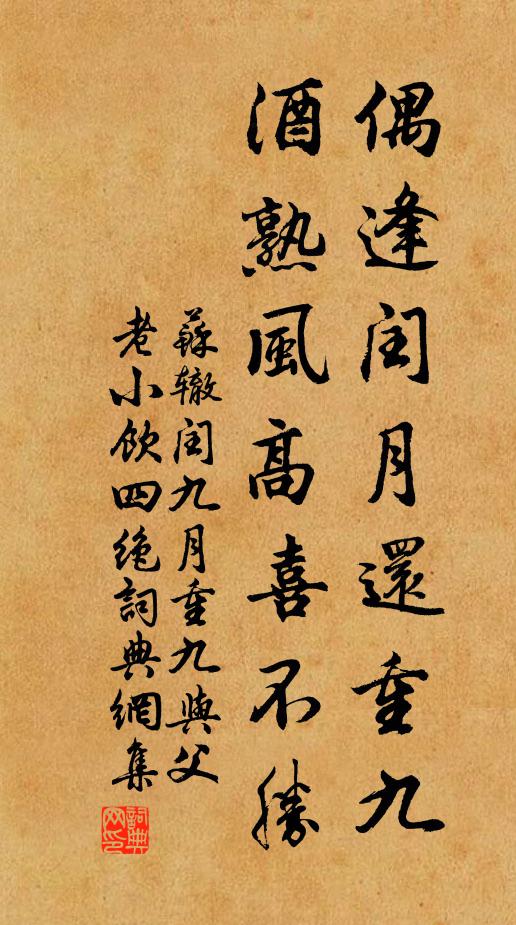 偶逢闰月還重九
酒熟風高喜不勝
蘇辙闰九月重九與父
老小飲四絶詞典網集
詞典
网印